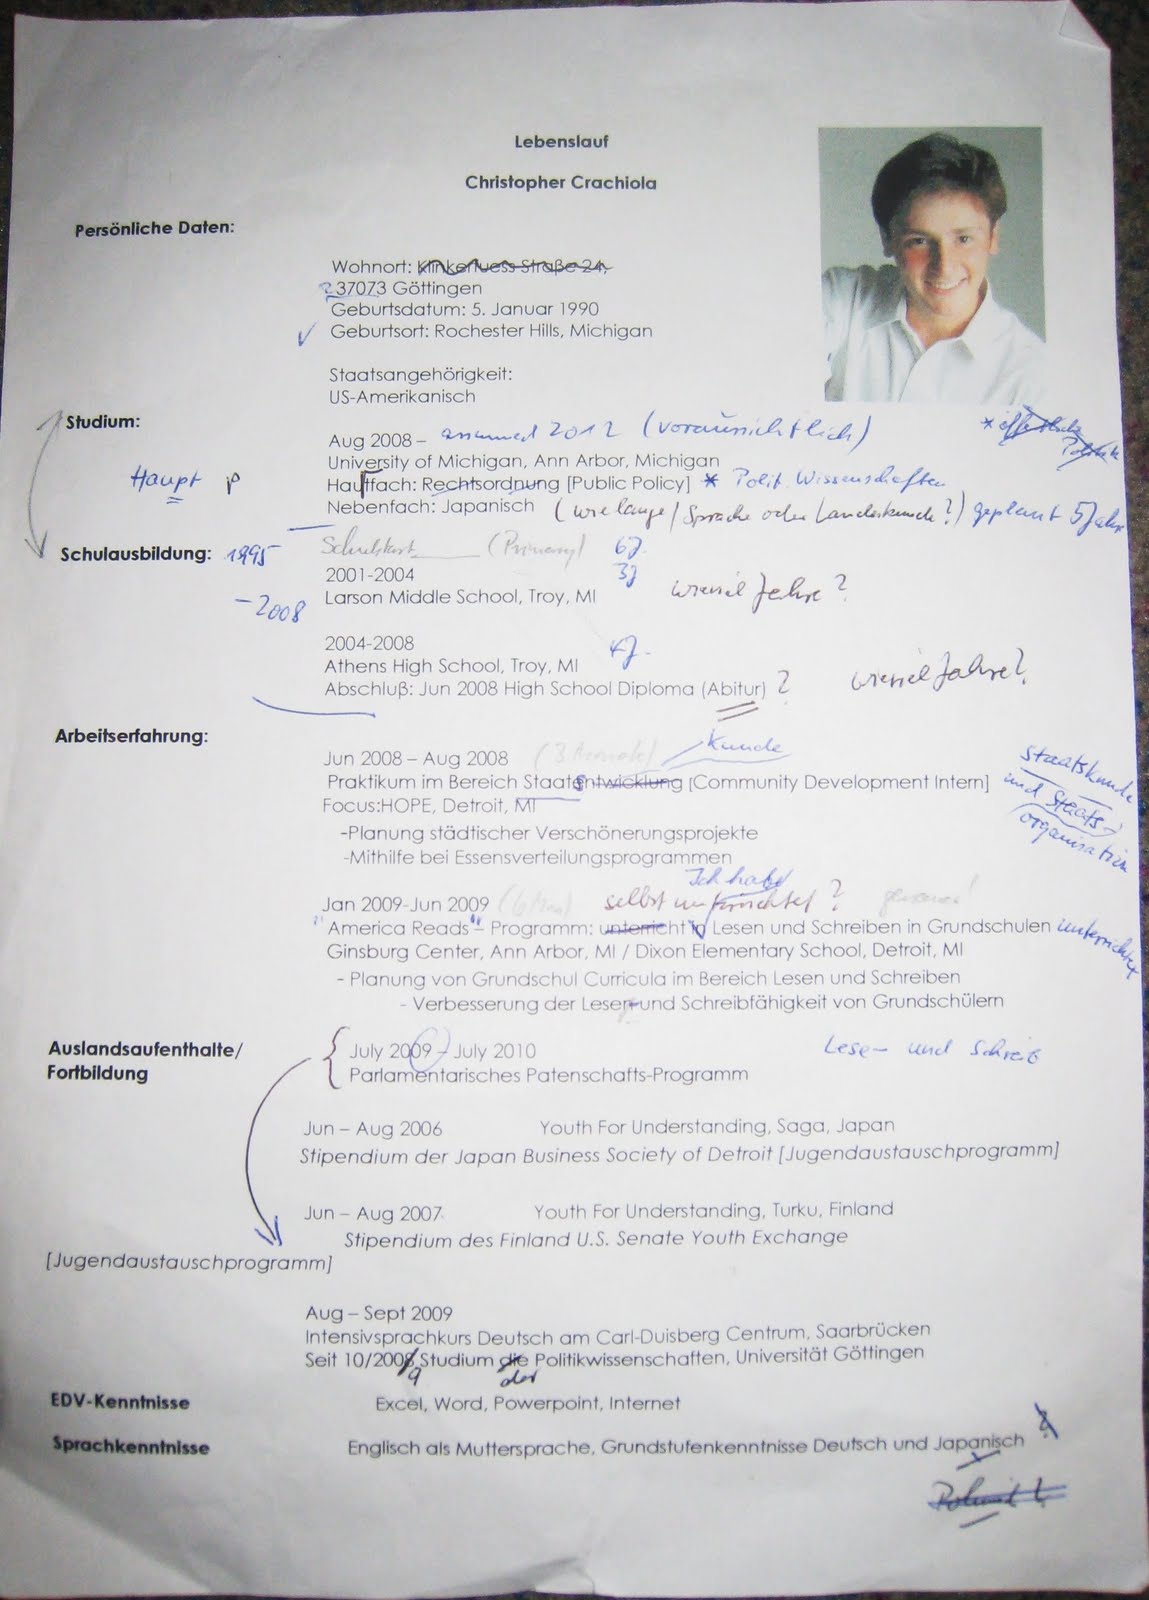 Lebenslauf
Christopher Crachiola
Persönliche Daten:
Wohnort: Klinkerfuess Straße 24,
? 37073 Göttingen
Geburtsdatum: 5. Januar 1990
Geburtsort: Rochester Hills, Michigan
Staatsangehörigkeit:
US-Amerikanisch
Studium:
Aug 2008 – 2012 (voraussichtlich)
University of Michigan, Ann Arbor, Michigan
Haupt p Hauffach: Rechtsordnung [Public Policy] * Polit. Wissenschaften
Nebenfach: Japanisch (wie lange / Sprache oder Landeskunde?) geplant 5 Jahre
Schulausbildung: 1995 (Primary) 6J.
– 2008
2001-2004 3J
Larson Middle School, Troy, MI wieviel Jahre?
2004-2008 4J.
Athens High School, Troy, MI
Abschluß: Jun 2008 High School Diploma (Abitur) ? wieviel Jahre?
Arbeitserfahrung:
Jun 2008 – Aug 2008 kunde
Praktikum im Bereich Staatentwicklung [Community Development Intern] Staatskunde
Focus:HOPE, Detroit, MI und Staats-
organisation
-Planung städtischer Verschönerungsprojekte
-Mithilfe bei Essensverteilungsprogrammen
Ich habe
Jan 2009-Jun 2009 selbst unterrichtet?
"America Reads"- Programm: unterricht in Lesen und Schreiben in Grundschulen unterrichtet
Ginsburg Center, Ann Arbor, MI / Dixon Elementary School, Detroit, MI
- Planung von Grundschul Curricula im Bereich Lesen und Schreiben
- Verbesserung der Lesen und Schreibfähigkeit von Grundschülern
Auslandsaufenthalte/
Fortbildung
July 2009 – July 2010 Lese- und Schreib
Parlamentarisches Patenschafts-Programm
Jun – Aug 2006 Youth For Understanding, Saga, Japan
Stipendium der Japan Business Society of Detroit [Jugendaustauschprogramm]
Jun – Aug 2007 Youth For Understanding, Turku, Finland
Stipendium des Finland U.S. Senate Youth Exchange
[Jugendaustauschprogramm]
Aug – Sept 2009
Intensivsprachkurs Deutsch am Carl-Duisberg Centrum, Saarbrücken
Seit 10/2008 Studium die Politikwissenschaften, Universität Göttingen
9 der
EDV-Kenntnisse Excel, Word, Powerpoint, Internet
Sprachkenntnisse Englisch als Muttersprache, Grundstufenkenntnisse Deutsch und Japanisch